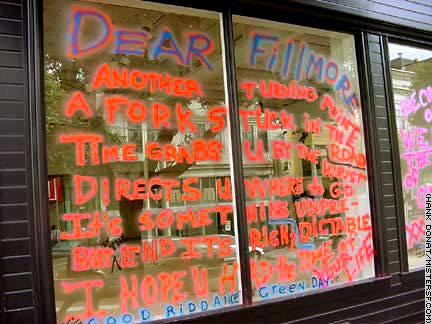 DEAR FILLMORE
ANOTHER TURNING POINT
A FORK STUCK IN THE ROAD
TIME GRABS U BY THE WRIST
DIRECTS U WHERE to GO
IT'S SOMETHING UNPRE-
DICTABLE
BUT END ITS RIGHT
I HOPE U HAD the TIME OF
YOUR LIFE
GOOD RIDDANCE Green DAY
WE
THE
OF
(HANK DONAT/MISTERSF.COM)